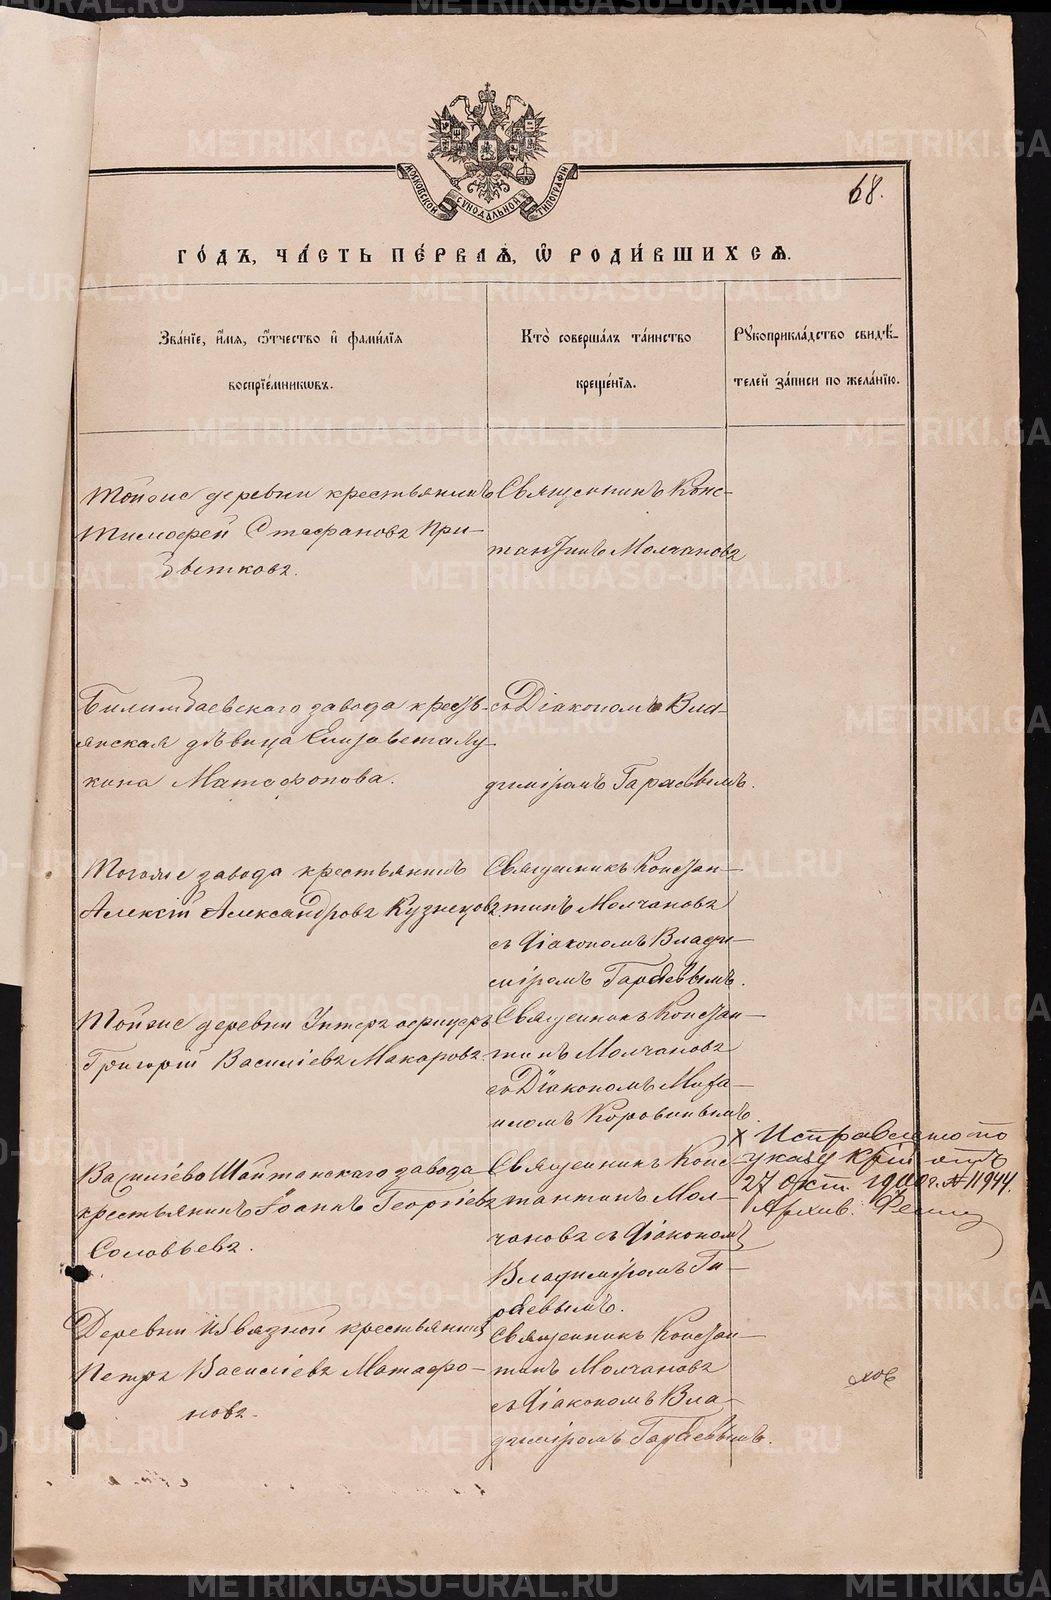 METRIKI.GASO-URAL.RU
68.
МОСКОВСКОЙ СѴНОДАЛЬНОЙ ТИПОГРАФІИ
ГО́ДЪ, ЧА́СТЬ ПЕ́РВАѦ, Ѿ РОДИ́ВШИХСѦ.
Зва́нїе, и҆́мѧ, ѻ҆́тчество и҆ фами́лїѧ
воспрїе́мникѡвъ.
Кто̀ соверша́лъ та́инство
креще́нїѧ.
Рꙋкоприкла́дство свидѣ́-
телей за́писи по жела́нїю.
Тойже деревни крестьянинъ
Тимофей Стефановъ При-
Священникъ Конс-
тантинъ Молчановъ
Билимбаевскаго завода кресть-
янская дѣвица Елизавета Лу-
кина Матафонова.
съ Діакономъ Вла-
диміромъ Гаряевымъ.
Тогоже завода крестьянинъ
Алексій Александровъ Кузнецовъ.
Священникъ Констан-
тинъ Молчановъ
съ Діакономъ Влади-
міромъ Гаряевымъ.
Тойже деревни Унтеръ офицеръ
Григорій Василіевъ Макаровъ
Священникъ Констан-
тинъ Молчановъ
съ Діакономъ Миха-
иломъ Коровинымъ.
Василіево Шайтанскаго завода
крестьянинъ Іоаннъ Георгіевъ
Соловьевъ.
Священникъ Конс-
тантинъ Мол-
чановъ съ Діакономъ
Владиміромъ Га-
ряевымъ.
х Исправлено по
указу от
27 окт. 1900 г. № 11944.
Архив.
Деревни Извязной крестьянинъ
Петръ Василіевъ Матафо-
новъ.
Священникъ Констан-
тинъ Молчановъ
съ Діакономъ Вла-
диміромъ Гаряевымъ.